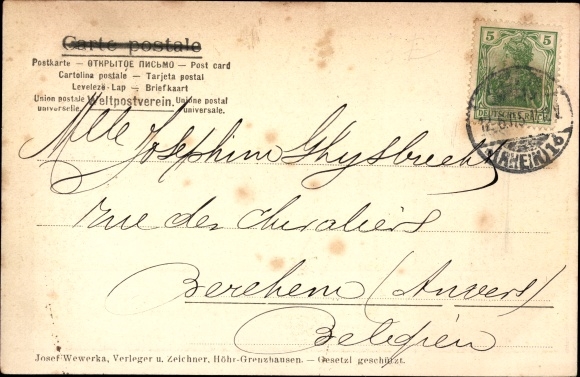 Carte postale
Postkarte — ОТКРЫТОЕ ПИСЬМО — Post card
Cartolina postale — Tarjeta postal
Levelező-Lap — Briefkaart
Union postale universelle. Weltpostverein. Unione postal universale.
5 5
DEUTSCHES REICH
(RHEIN) 16
Mlle Josephine Ghysbrecht
rue des chevaliers
Berchem (Anvers)
Belgien
Josef Wewerka, Verleger u. Zeichner, Höhr-Grenzhausen. — Gesetzl geschützt.